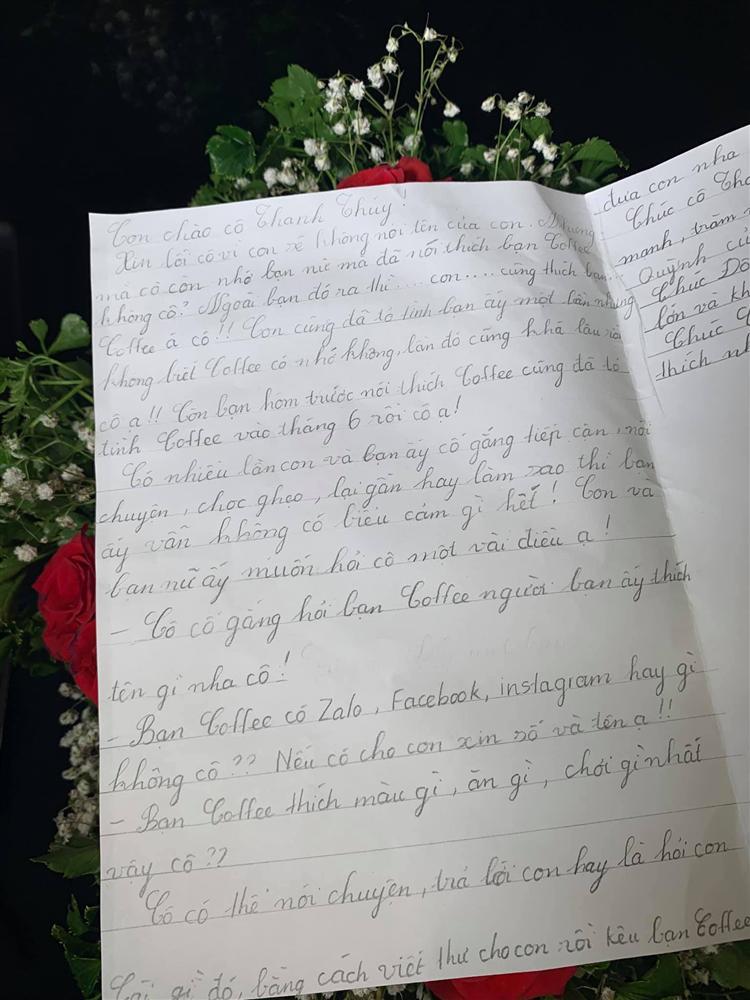 Con chào cô Thanh Thúy!
Xin lỗi cô vì con sẽ không nói tên của con. Nhưng
mà cô còn nhớ bạn nữ mà đã nói thích bạn Coffee
không cô? Ngoài bạn đó ra thì.... con.... cũng thích bạn...
Coffee á cô!! Con cũng đã tỏ tình bạn ấy một lần nhưng
không biết Coffee có nhớ không, lần đó cũng khá lâu rồi
cô ạ!! Còn bạn hôm trước nói thích Coffee cũng đã tỏ
tình Coffee vào tháng 6 rồi cô ạ!
Có nhiều lần con và bạn ấy cố gắng tiếp cận, nói
chuyện, chọc ghẹo, lại gần hay làm sao thì bạn
ấy vẫn không có biểu cảm gì hết! Con và
bạn nữ ấy muốn hỏi cô một vài điều ạ!
- Cô cố gắng hỏi bạn Coffee người bạn ấy thích
tên gì nha cô!
- Bạn Coffee có Zalo, Facebook, instagram hay gì
không cô?? Nếu có cho con xin số và tên ạ!!
- Bạn Coffee thích màu gì, ăn gì, chơi gì nhất
vậy cô??
Cô có thể nói chuyện, trả lời con hay là hỏi con
gì đó, bằng cách viết thư cho con rồi kêu bạn Coffee
đưa con nha
Chúc cô
mạnh, trăm
Quỳnh
Chúc
lớn và
Chúc
thích